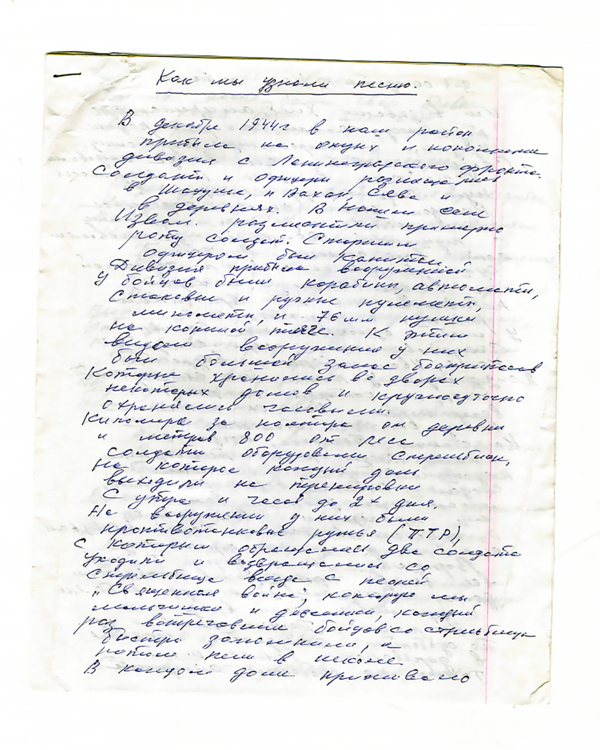 Как мы узнали песню.
В декабре 1944г в наш район
прибыла на отдых и пополнение
дивизия с Ленинградского фронта.
Солдаты и офицеры размещались
в Шахунье, п Вахтан, Сява и
в деревнях. В нашем селе
разместили примерно
роту солдат. Старшим
офицером был капитан.
Дивизия прибыла вооруженной
У бойцов были карабины, автоматы,
станковые и ручные пулеметы,
минометы, и 76мм пушки
на конной тяге. К этим
видам вооружения у них
был большой запас боеприпасов
которые хранились во дворах
некоторых домов и круглосуточно
охранялись часовыми.
Километра за полтора от деревни
и метрах 800 от леса
солдаты оборудовали стрельбище,
на которое каждый день
выходили на тренировки
с утра и часов до 2х дня.
На вооружении у них были
противотанковые ружья (ПТР),
с которыми обращались два солдата
уходили и возвращались со
стрельбища всегда с песней
„Священная война", которую мы
мальчишки и девчонки, каждый
раз встречавшие бойцов со стрельбища
быстро запомнили, и
потом пели в школе
В каждом доме проживало